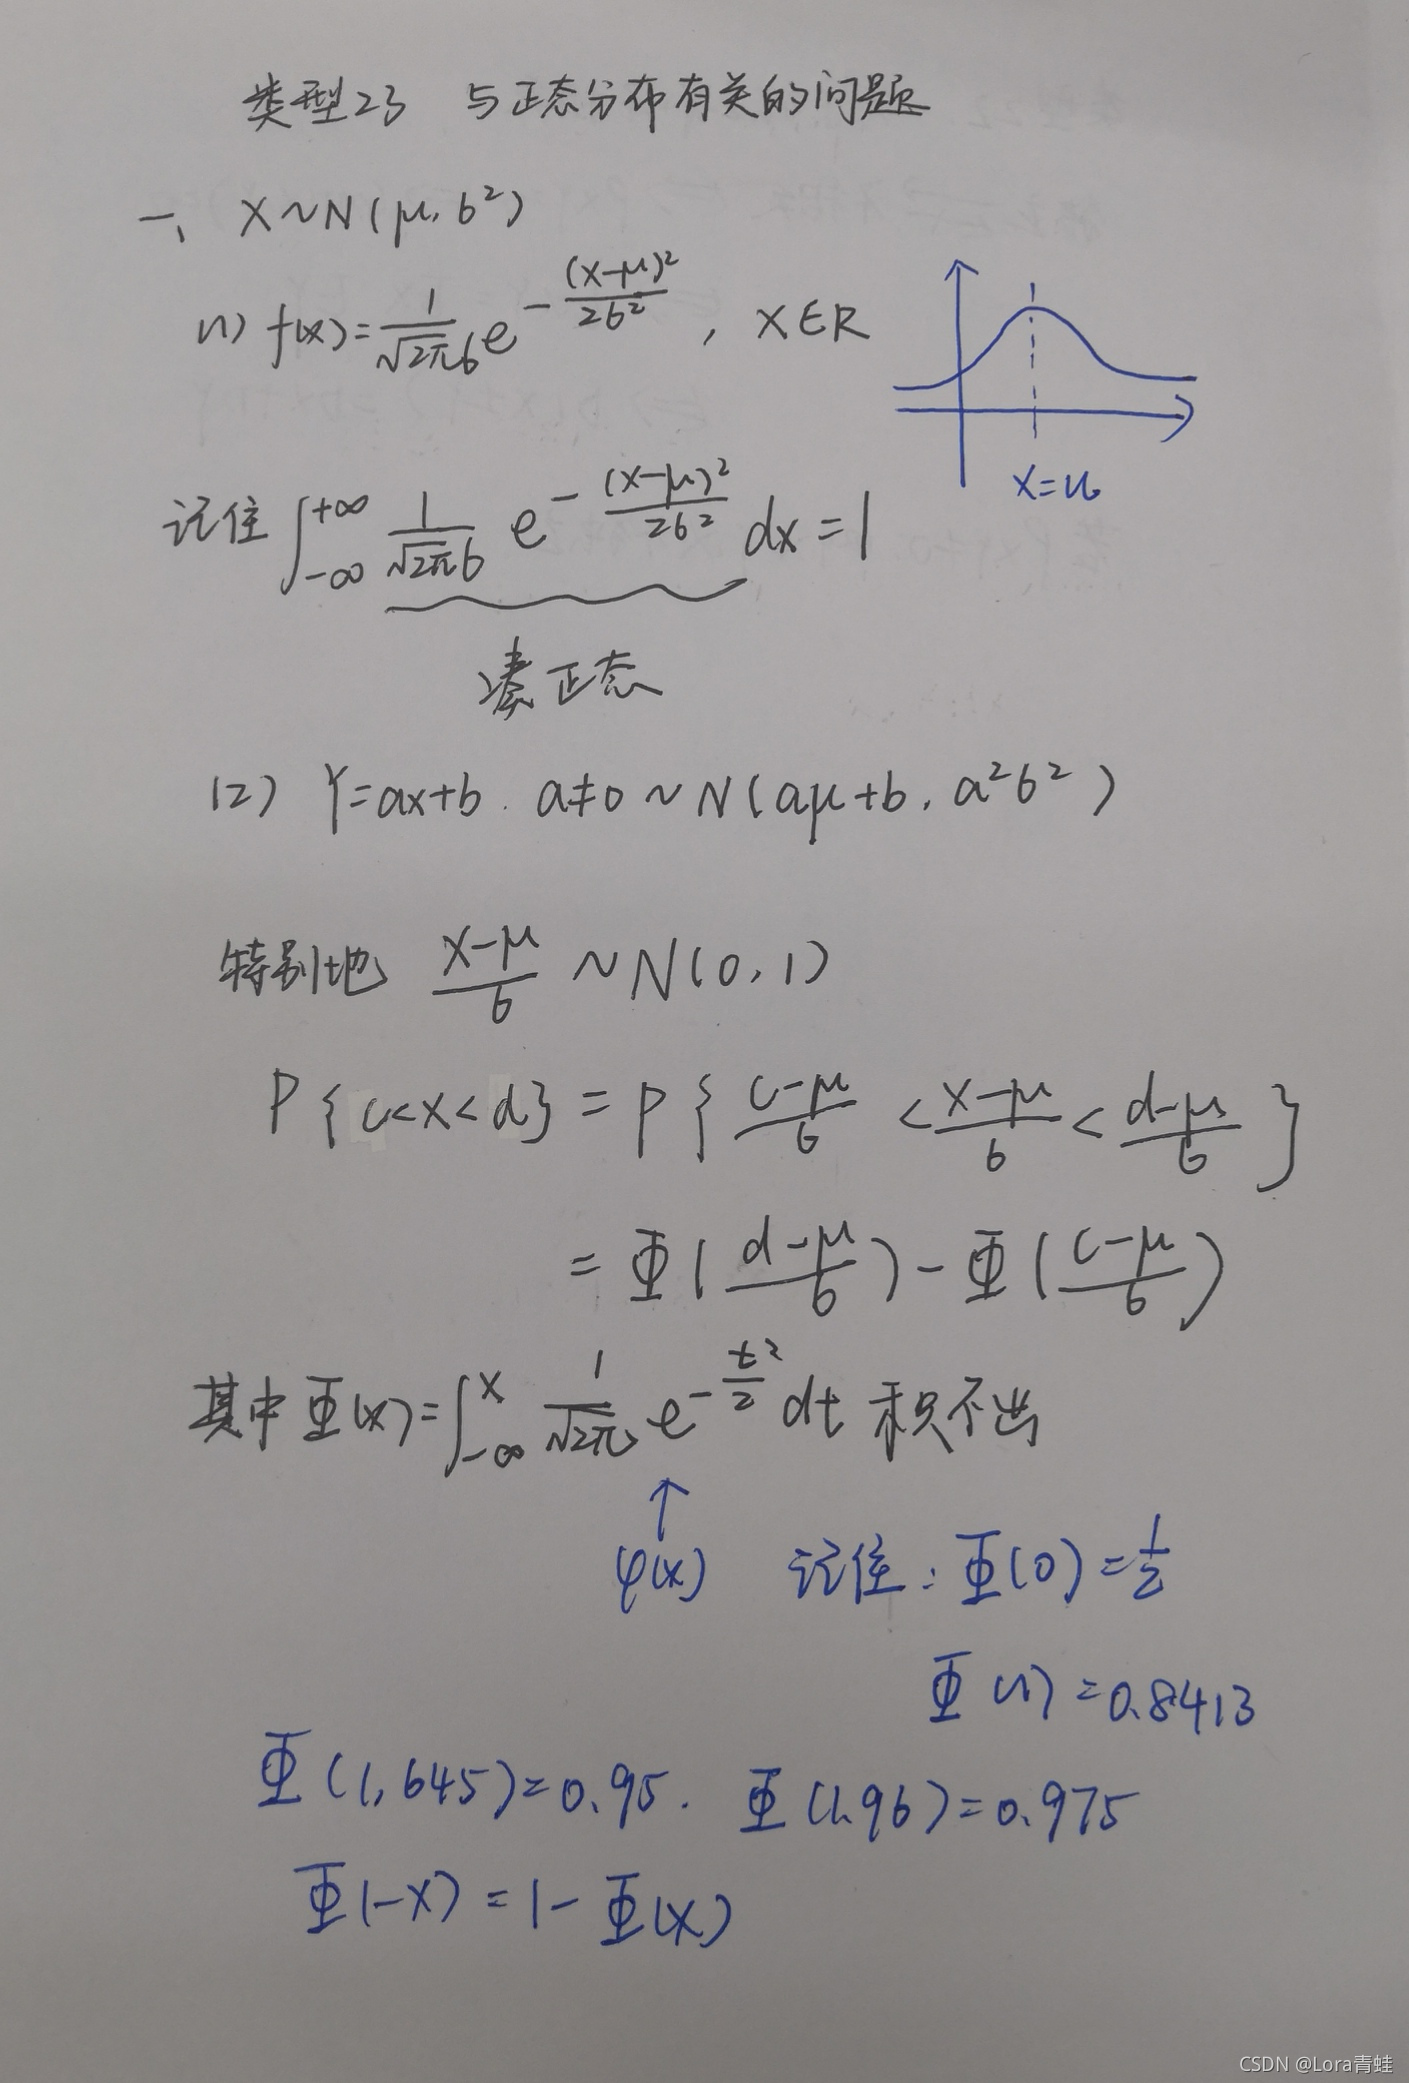 类型23 与正态分布有关的问题
一、X~N(μ, σ²)
(1) f(x)=\frac{1}{\sqrt{2π}σ}e^{-\frac{(x-μ)²}{2σ²}}, x∈R
x=μ
记住 ∫_{-∞}^{+∞} \frac{1}{\sqrt{2π}σ} e^{-\frac{(x-μ)²}{2σ²}} dx=1
凑正态
(2) Y=ax+b. a≠0 ~ N(aμ+b, a²σ²)
特别地 \frac{x-μ}{σ} ~N(0,1)
P{c<x<d} = P{\frac{c-μ}{σ} < \frac{x-μ}{σ} < \frac{d-μ}{σ}}
= Φ(\frac{d-μ}{σ}) - Φ(\frac{c-μ}{σ})
其中Φ(x)=∫_{-∞}^{x} \frac{1}{\sqrt{2π}} e^{-\frac{t²}{2}} dt 积不出
↑
φ(x) 记住: Φ(0)=\frac{1}{2}
Φ(1)=0.8413
Φ(1.645)=0.95. Φ(1.96)=0.975
Φ(-x)=1-Φ(x)
CSDN @Lora青蛙